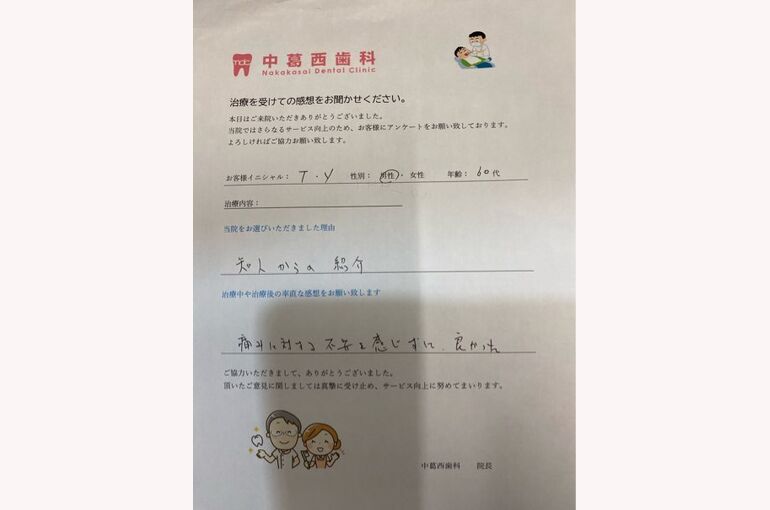 mdc
中葛西歯科
Nakakasai Dental Clinic
治療を受けての感想をお聞かせください。
本日はご来院いただきありがとうございました。
当院ではさらなるサービス向上のため、お客様にアンケートをお願い致しております。
よろしければご協力お願い致します。
お客様イニシャル： T．Y 性別： 男性・ 女性 年齢： 60 代
治療内容：
当院をお選びいただきました理由
知人からの 紹介
治療中や治療後の率直な感想をお願い致します
痛みに対する 不安を感じずに、良かった
ご協力いただきまして、ありがとうございました。
頂いたご意見に関しましては真摯に受け止め、サービス向上に努めてまいります。
中葛西歯科 院長